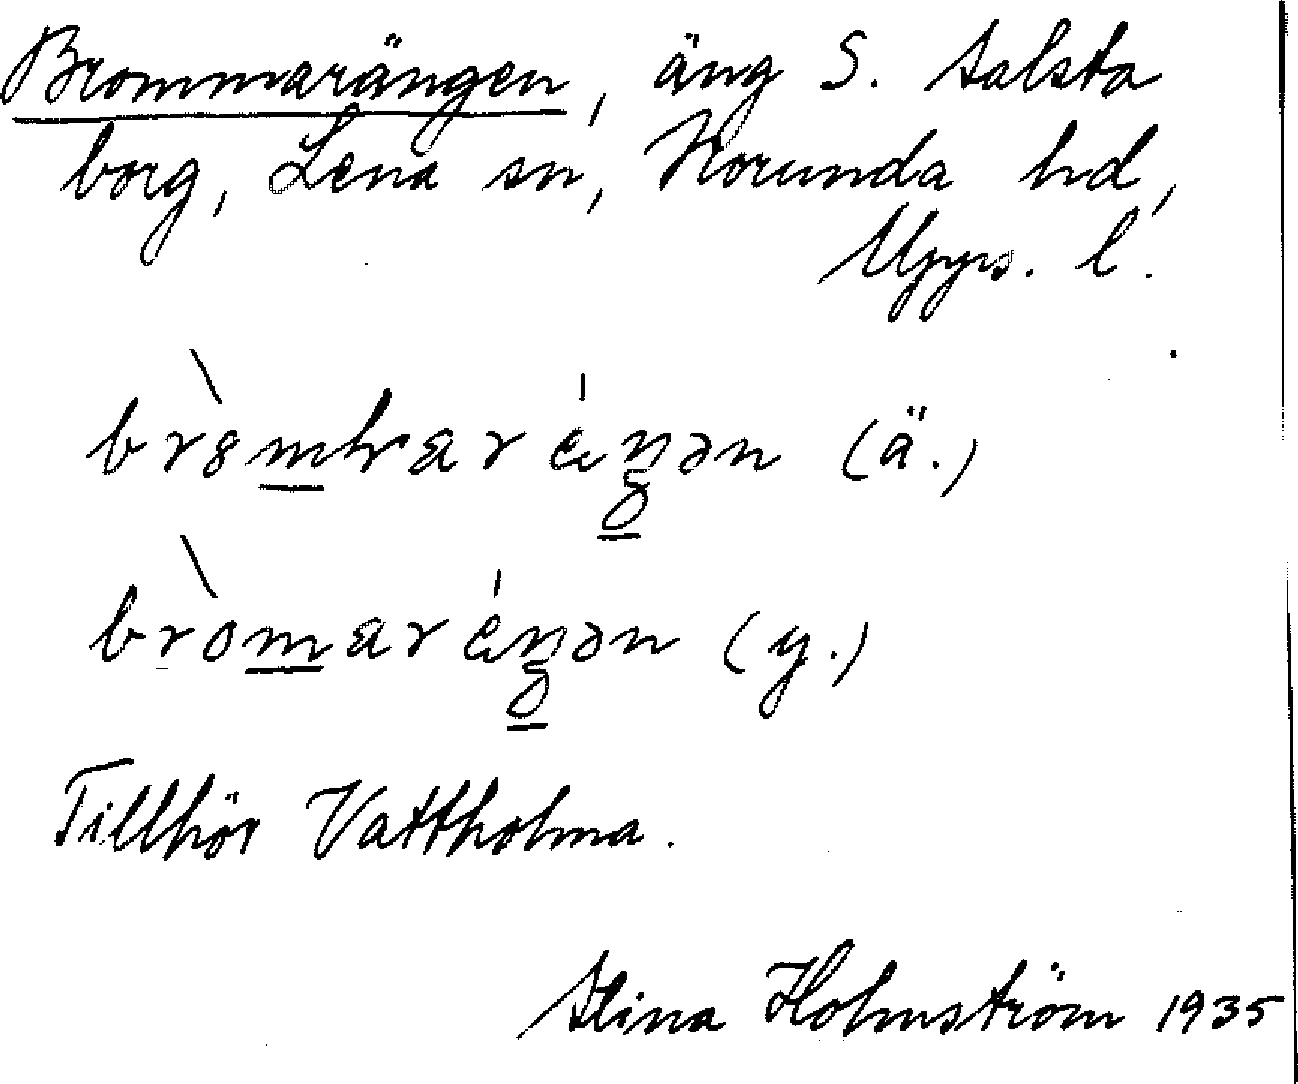 Brommarängen, äng S. Salsta
borg, Lena sn, Norunda hd,
Upps. l.
(ä.)
bròmarǽŋən (y.)
Tillhör Vattholma.
Stina Holmström 1935